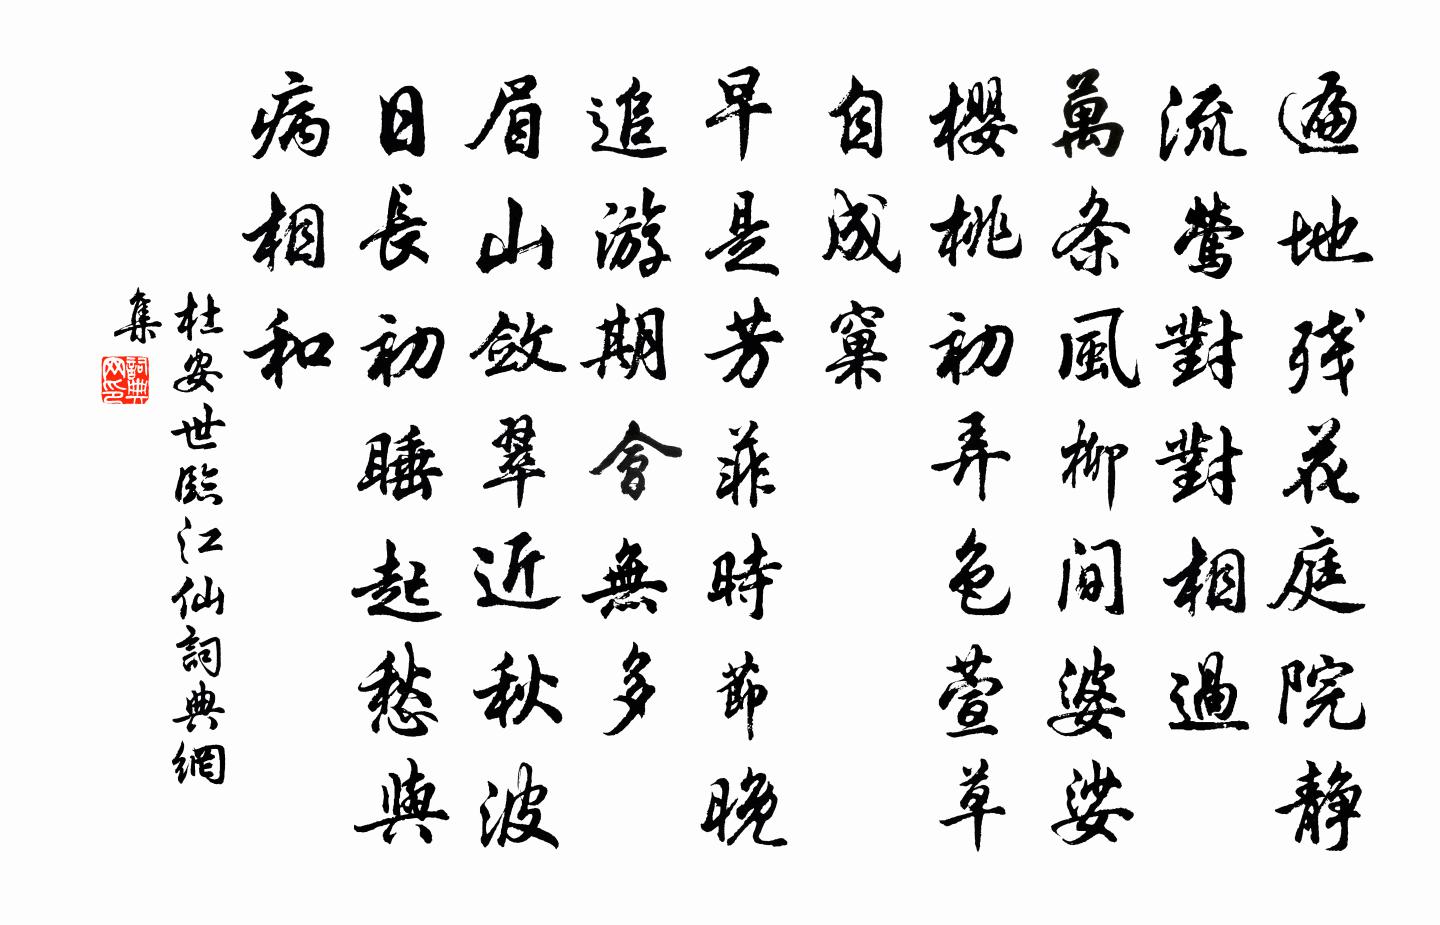 遍地残花庭院静
流鶯對對相過
萬条風柳間婆娑
櫻桃初弄色萱草
自成窠
早是芳菲時節晚
追游期會無多
眉山斂翠近秋波
日長初睡起愁與
病相和
杜安世臨江仙詞典網
集
詞典网印